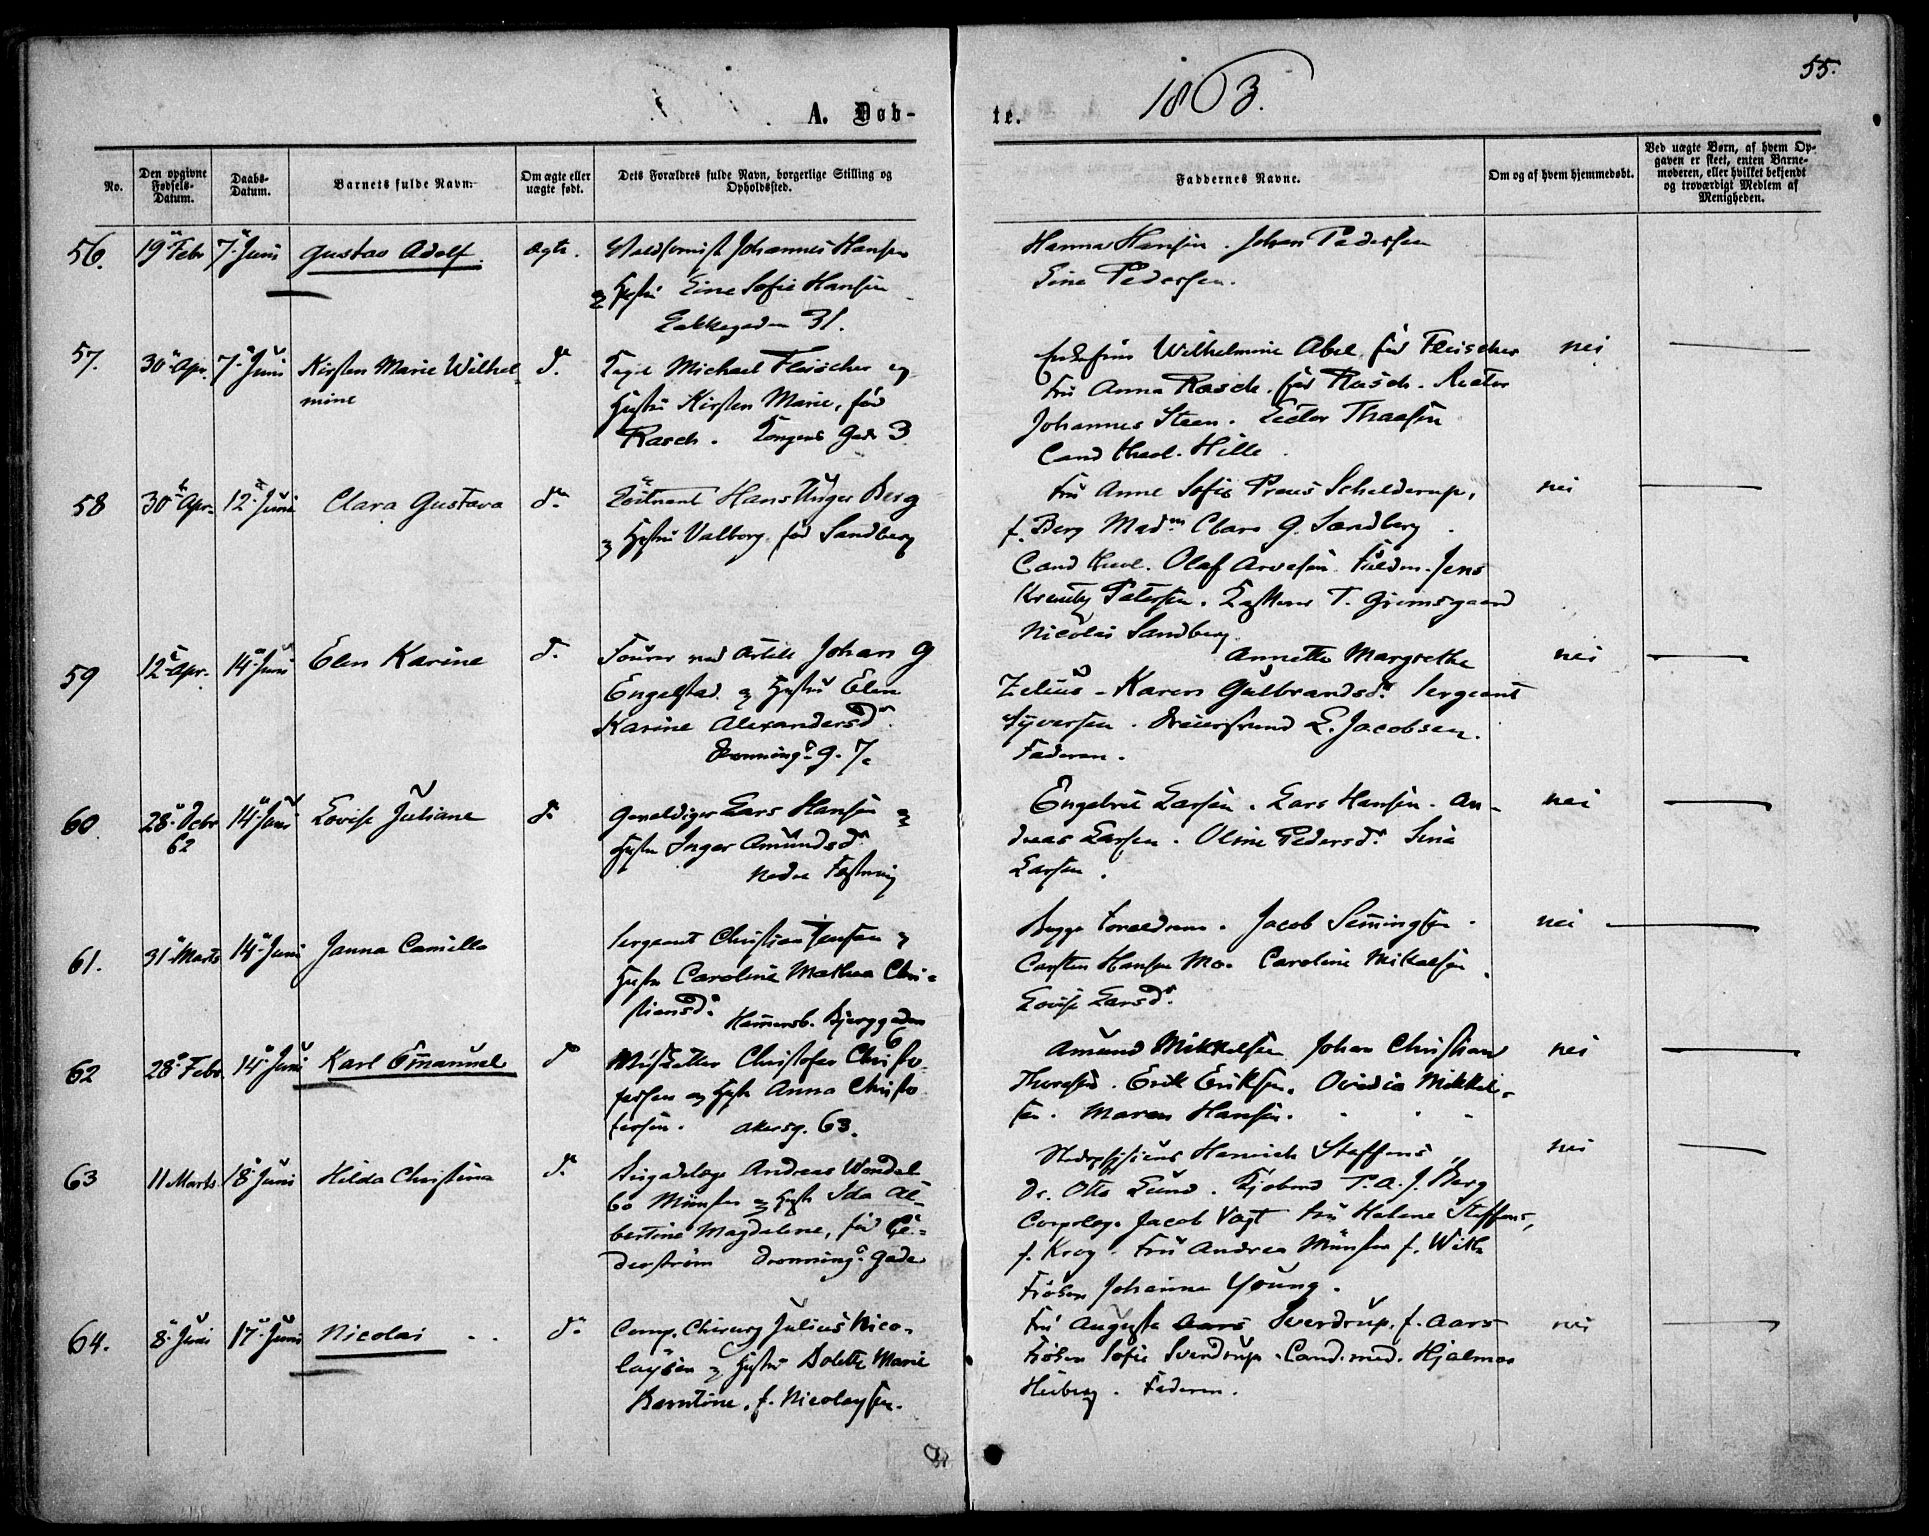 55.
1863.
A. Døb-
te.
No.
Den opgivne Fødsels-Datum.
Daabs-Datum.
Barnets fulde Navn.
Om ægte eller uægte født.
Dets Forældres fulde Navn, borgerlige Stilling og Opholdssted.
Faddernes Navne.
Om og af hvem hjemmedøbt.
Ved uægte Børn, af hvem Opgaven er skeet, enten Barnemoderen, eller hvilket bekjendt og troværdigt Medlem af Menigheden.
56. 19 Febr 7 Juni Gustav Adolf. ægte. Johannes Hansen
Hustru Eine Sofie Hansen
31.
Hanna Hansen. Johan Pedersen
Eine Pedersen.
57. 30 Apr. 7 Juni Kirsten Marie Wilhel-
mine
d. Michael Fleischer og
Hustru Kirsten Marie, fød
Rasch. Kongens Gade 3
Wilhelmine Abel fød Fleischer nei
Fru Anna Rasch. fød Rasch. Rector
Johannes Steen. Thaasen
Cand theol. Hille.
58 30 Apr. 12 Juni Clara Gustava do. Løitnant Hans Unger Berg
og Hustru Valborg fød Sandberg
Fru Anne Sofie Preus Schelderup, nei
f. Berg Madm Clara G. Sandberg.
Cand theol. Olaf Arvesen. Jens
Petersen. T. Grimsgaard
Nicolai Sandberg.
59 12 Apr. 14 Juni Elen Karine d. Fourer ved Artill Johan G
Engelstad og Hustru Elen
Karine Alexandersdr.
Dronning. g. 7.
Annette Margrethe nei
Zelius - Karen Gulbrandsdr. Sergeant
Syversen. L. Jacobsen.
Faderen.
60. 28 Decbr
62
14 Juni Lovise Juliane d. Gevaldiger Lars Hansen og
Hustru Inger Amundsdr.
Nedre Festning
Engebret Larsen. Lars Hansen. An- nei
dreas Larsen. Oline Pedersdr.
Larsen.
61. 31 Marts 14 Juni Janna Camilla
Sergeant Christian Jensen og
Hustru Caroline Mathea Chri-
stiansdr. Hamersb. Bjerggaden
6
Begge Forældrene. Jacob Semingsen. nei
Carsten Hansen Mo. Caroline Mikalsen.
Lovise Larsdr.
62 28 Febr. 14 Juni Karl Emanuel do Christofer Christo-
fersen og Hustr Anna Christo
fersen. Akersg. 63.
Amund Mikkelsen Johan Christian nei
Erik Eriksen. Ovidia Mikkel-
sen. Maren Hansen.
63 11 Marts 18 Juni Hilda Christina d. Brigadelæge Andreas Wendel-
bo Münster og Hustr Ida Al-
bertine Magdalene, fød Ce-
derstrøm Dronning. Gade
Stadsphysicus Henrich Steffens, nei
Dr. Otto Lund. Kjøbmd P. A. J. Berg
Corpslæge Jacob Vogt Fru Helene Steffens,
f. Krog. Fru Andrea Münster f. With
Frøken Johanne Young.
64. 8 Juni 17 Juni Nicolai d. Comp. Chirurg Julius Nico-
laysen og Hustru Bolette Marie
Berntine, f. Nicolaysen.
Fru Augusta Aars Sverdrup. f. Aars nei
Frøken Sofie Sverdrup. Cand. med. Hjalmar
Heiberg. Faderen.